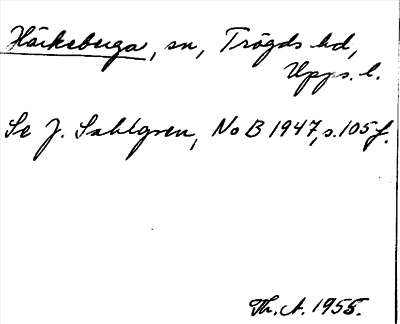 Härkeberga, sn, Trögds hd,
Upps. l.
Se J. Sahlgren, NoB 1947, s. 105 f.
Th. A. 1955.